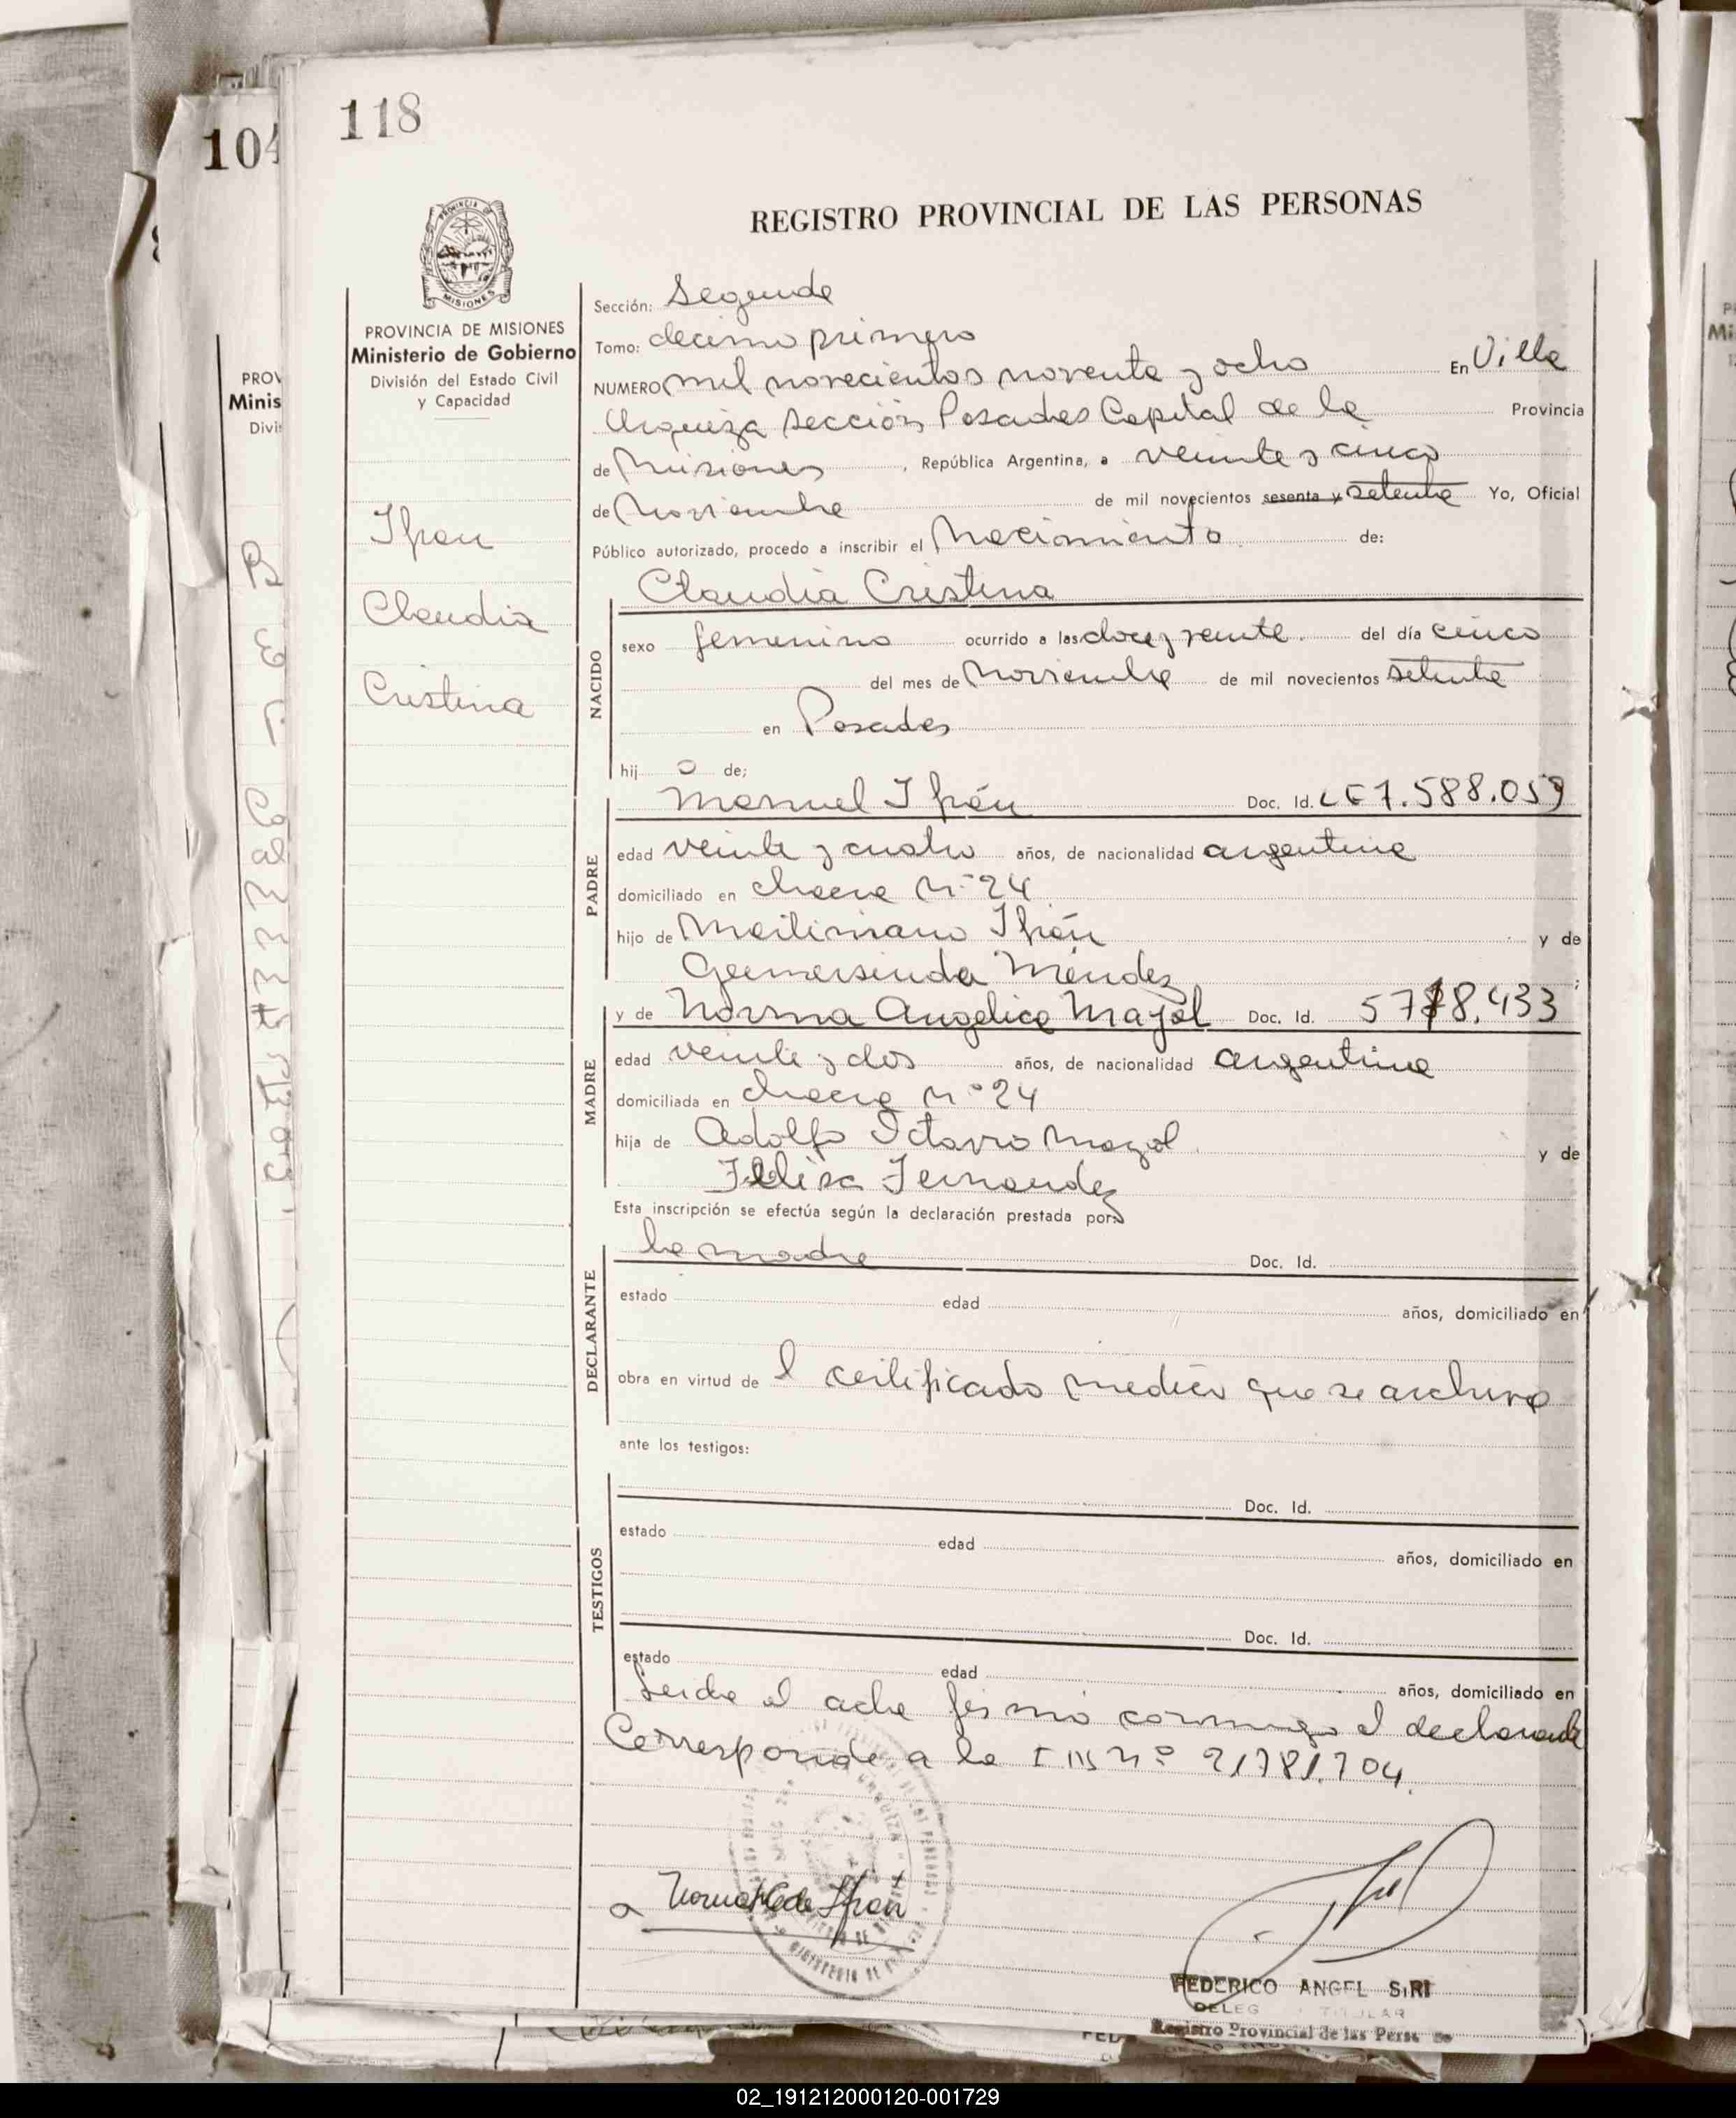 118
104
REGISTRO PROVINCIAL DE LAS PERSONAS
PROVINCIA DE MISIONES
Ministerio de Gobierno
División del Estado Civil
y Capacidad
Ifran
Claudia
Cristina
Sección: Segunda
Tomo: decimo primero
NUMERO mil novecientos noventa y ocho En Villa
Urquiza Sección Posadas Capital de la Provincia
de Misiones, República Argentina, a veinte y cinco
de Noviembre de mil novecientos sesenta y setenta Yo, Oficial
Público autorizado, procedo a inscribir el Nacimiento de:
Claudia Cristina
NACIDO
sexo femenino ocurrido a las doce y veinte del día cinco
del mes de Noviembre de mil novecientos setenta
en Posadas
hij a de;
PADRE
Manuel Ifrán Doc. Id. LE 7.588.059
edad veinte y cuatro años, de nacionalidad argentina
domiciliado en chacra Nº 24
hijo de Ifrán y de
Gumersinda Méndez;
MADRE
y de Norma Angelica Mayol Doc. Id. 5778.433
edad veinte y dos años, de nacionalidad argentina
domiciliada en chacra Nº 24
hija de Adolfo Octavio Mayol y de
Fernandez
Esta inscripción se efectúa según la declaración prestada por:
DECLARANTE
la madre Doc. Id.
estado edad años, domiciliado en
obra en virtud de l certificado medico que se archiva
ante los testigos:
TESTIGOS
Doc. Id.
estado edad años, domiciliado en
Doc. Id.
estado edad años, domiciliado en
Leida el acta firmó conmigo el declarante
Corresponde a la Nº 21781.704.
Ifran
FEDERICO ANGEL SIRI
DELEG TITULAR
Registro Provincial de las Personas
02_191212000120-001729